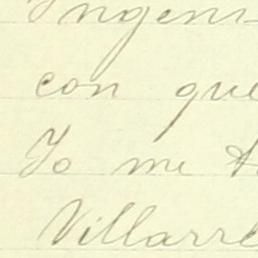 Ingeni-
con que
Yo me t
Villarre